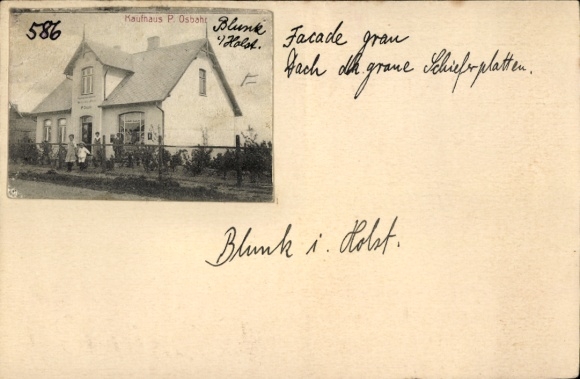 586
Kaufhaus P. Osbahr
Blunk
i/Holst.
Facade grau
Dach dk. graue Schieferplatten.
Blunk i. Holst.